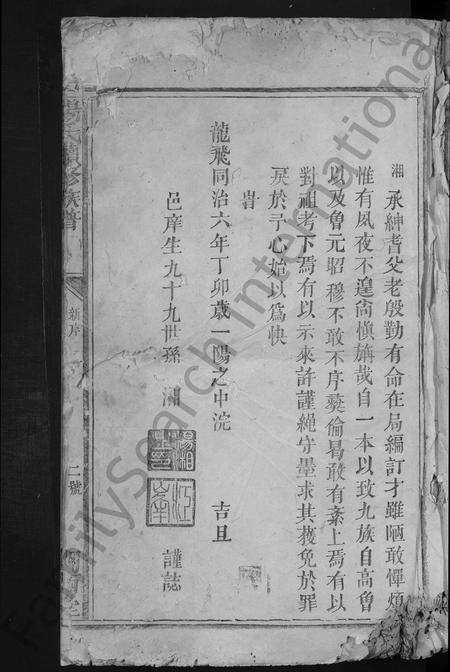 湘承紳耆父老殷勤有命在局編訂才雖陋敢憚煩
惟有夙夜不遑尙愼旃哉自一本以致九族自高魯
以及魯元昭穆不敢不序彝倫曷敢有紊上焉有以
對祖考下焉有以示來許謹繩守墨求其獲免於罪
戾於予心始以爲快
旹
龍飛同治六年丁卯歲一陽之中浣
吉旦
邑庠生九十九世孫湘
謹誌
續修族譜
新序
二號
FamilySearch International